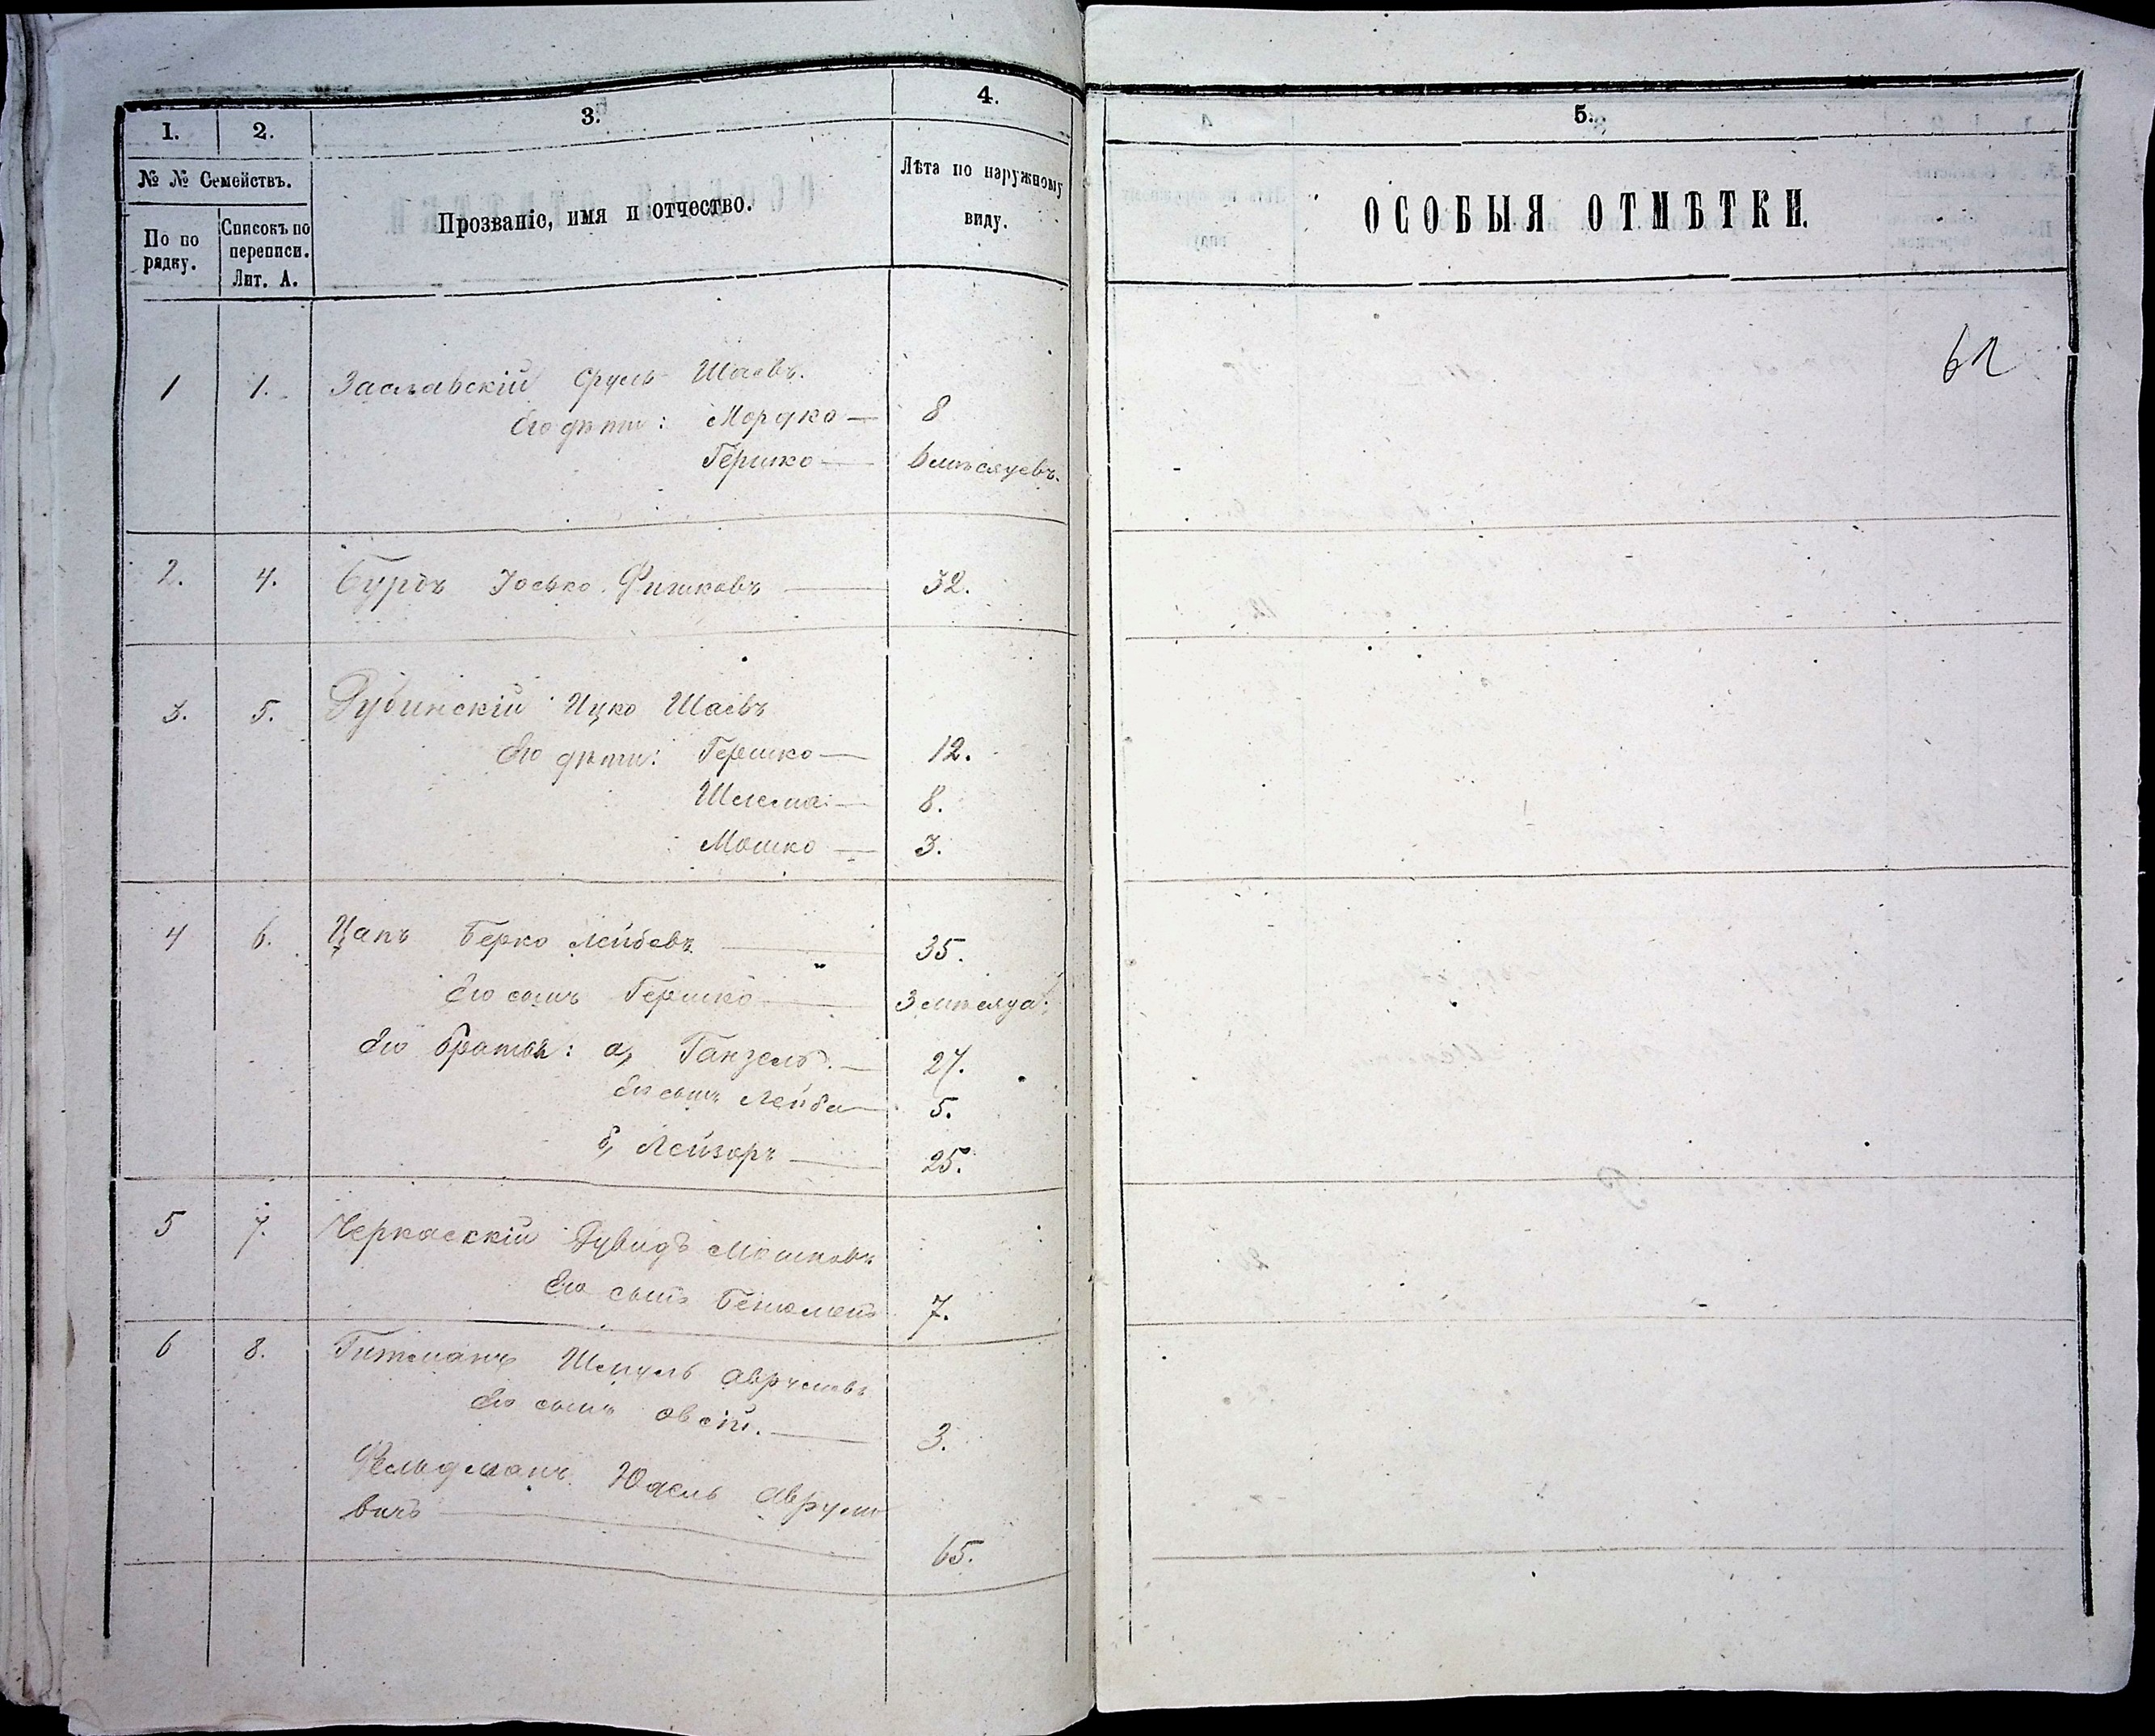 1.
2.
3.
4.
№ № Семействъ.
По по рядку.
Списокъ по переписи. Лит. А.
Прозваніе, имя и отчество.
Лѣта по наружному виду.
1 1. Заславскій Сруль Шаевъ.
Его дѣти: Мордко — 8
Гершко — 6 мѣсяцевъ.
2. 4. Бурдъ Іосько Фишковъ — 32.
3. 5. Дубинскій Ицко Шаевъ
Его дѣти: Гершко — 12.
Шлема — 8.
Мошко — 3.
4 6. Цапъ Берко Лейбовъ — 35.
Его сынъ Гершко — 3 мѣсяца.
Его братья: а, Ганзель. — 27.
Его сынъ Лейба — 5.
б, Лейзоръ — 25.
5 7. Черкаскій Дувидъ Мошковъ
Его сынъ Бенюменъ 7.
6 8. Гитманъ Шмуль Аврумовъ
Его сынъ Овсій. — 3.
Фельдманъ Юдель Аврумо
вичъ — 65.
5.
ОСОБЫЯ ОТМѢТКИ.